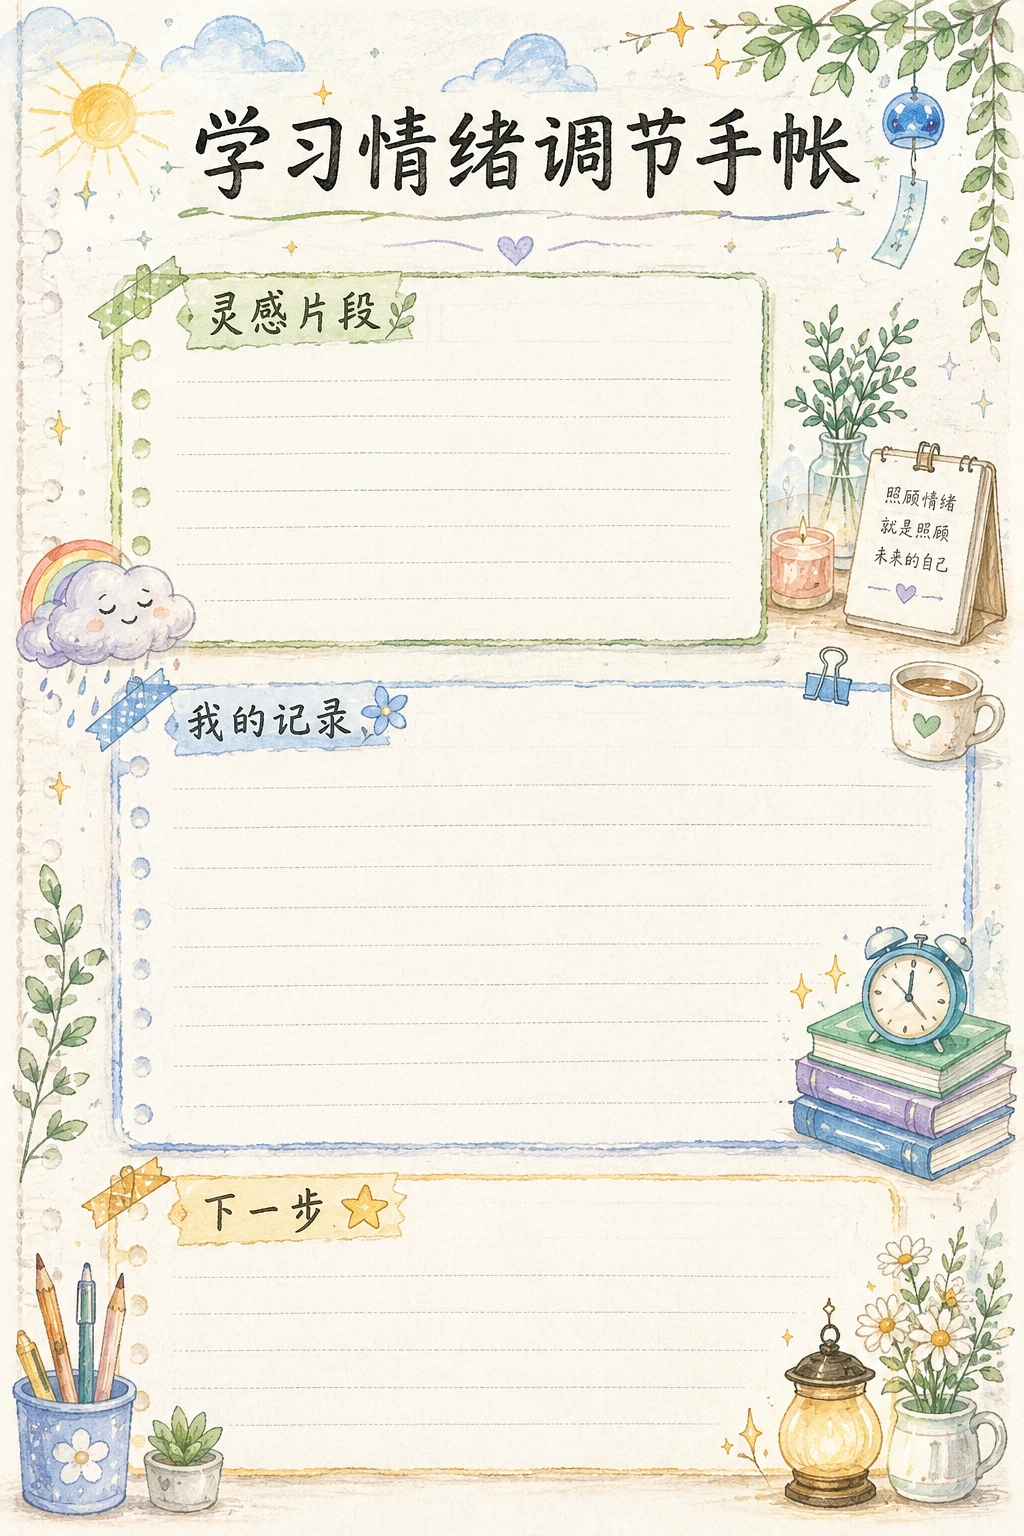 学习情绪调节手帐
灵感片段
照顾情绪
就是照顾
未来的自己
我的记录
下一步